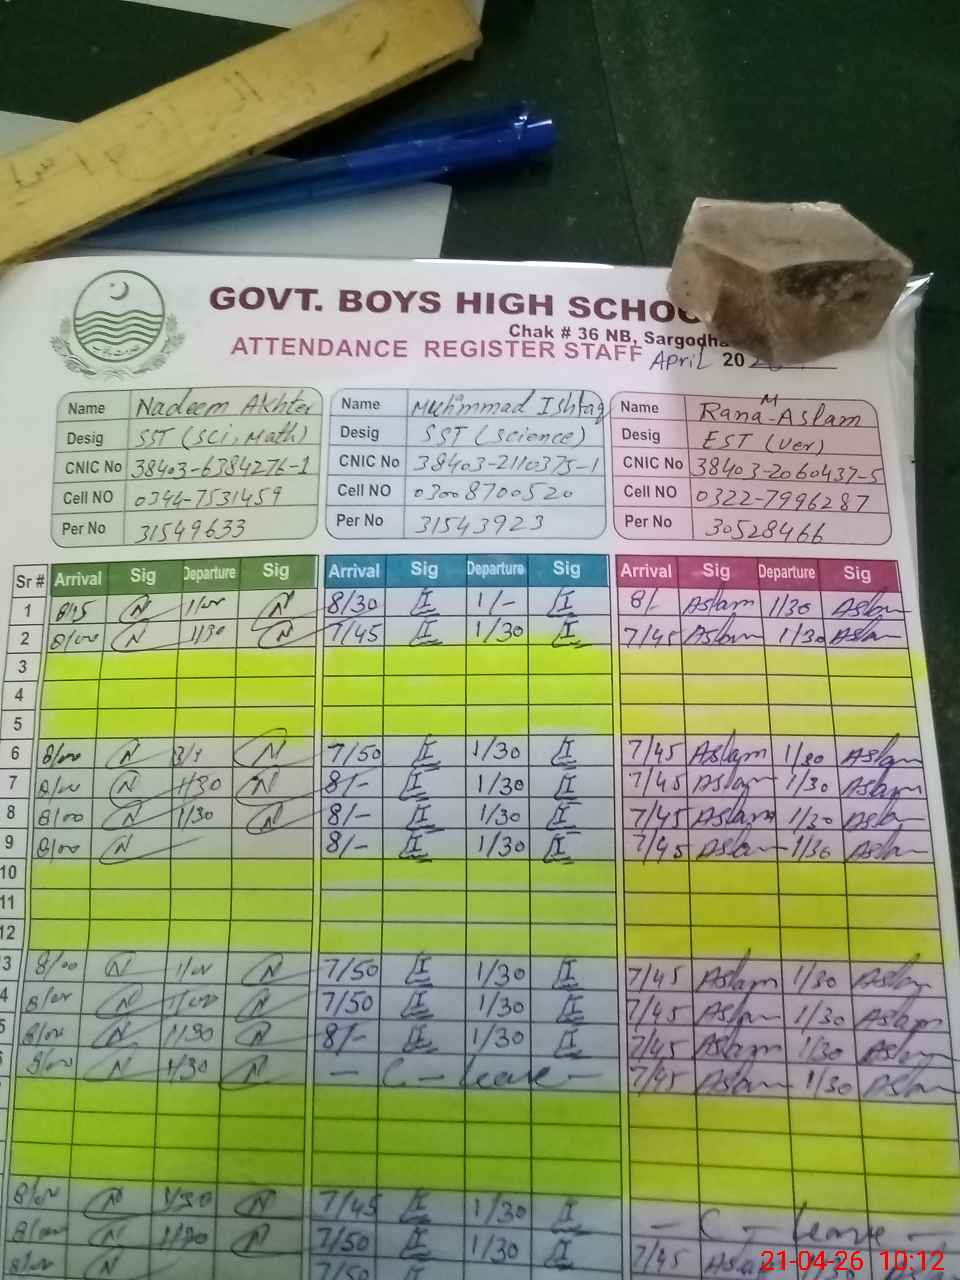 GOVT. BOYS HIGH SCHOO
Chak # 36 NB, Sargodha
ATTENDANCE REGISTER STAFF April 20
Name Nadeem Akhter Name Muhammad Ishtaq Name Rana M Aslam
Desig SST (Sci, Math) Desig SST (Science) Desig EST (Ver)
CNIC No 38403-6384276-1 CNIC No 38403-2110375-1 CNIC No 38403-2060437-5
Cell NO 0344-7531459 Cell NO 03008700520 Cell NO 0322-7996287
Per No 31549633 Per No 31543923 Per No 30528466
Sr # Arrival Sig Departure Sig Arrival Sig Departure Sig Arrival Sig Departure Sig
1 8/15 N 1/00 N 8/30 I 1/- I 8/- Aslam 1/30 Aslam
2 8/00 N 1/30 N 7/45 I 1/30 I 7/45 Aslam 1/30 Aslam
3
4
5
6 8/00 N N 7/50 I 1/30 I 7/45 Aslam 1/30 Aslam
7 8/00 N 1/30 N 8/- I 1/30 I 7/45 Aslam 1/30 Aslam
8 8/00 N 1/30 N 8/- I 1/30 I 7/45 Aslam 1/30 Aslam
9 8/00 N 8/- I 1/30 I 7/45 Aslam 1/30 Aslam
10
11
12
3 8/00 N 1/00 N 7/50 I 1/30 I 7/45 Aslam 1/30 Aslam
4 8/00 N 1/00 N 7/50 I 1/30 I 7/45 Aslam 1/30 Aslam
5 8/00 N 1/30 N 8/- I 1/30 I 7/45 Aslam 1/30 Aslam
8/00 N 1/30 N - C - leave - 7/45 Aslam 1/30 Aslam
8/00 N 1/30 N 7/45 I 1/30 I - C - leave -
8/00 N 1/30 N 7/50 I 1/30 I 7/45
8/00 N 7/50 I
21-04-26 10:12